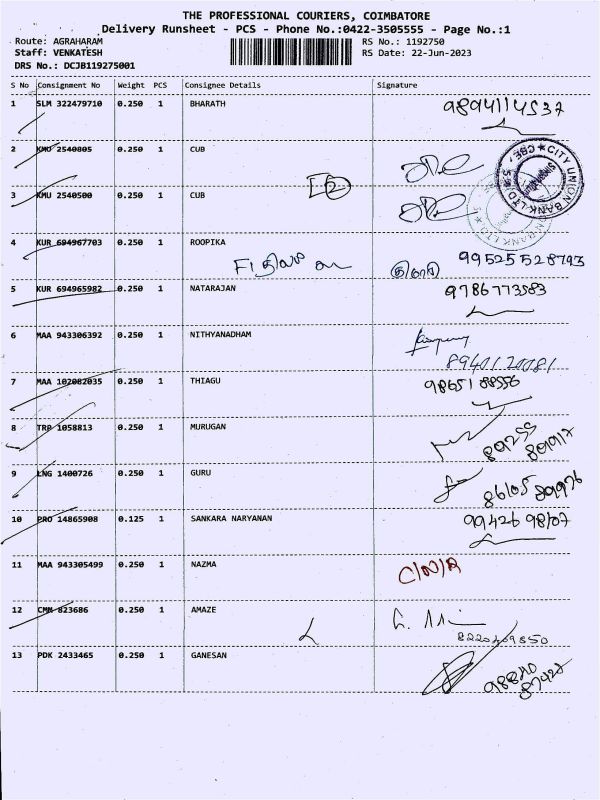 THE PROFESSIONAL COURIERS, COIMBATORE
Delivery Runsheet - PCS - Phone No.:0422-3505555 - Page No.:1
Route: AGRAHARAM
Staff: VENKATESH
DRS No.: DCJB119275001
RS No.: 1192750
RS Date: 22-Jun-2023
S No Consignment No Weight PCS Consignee Details Signature
1 SLM 322479710 0.250 1 BHARATH 9894114537
2 KMU 2540805 0.250 1 CUB
3 KMU 2540500 0.250 1 CUB 2
CITY UNION BANK LTD CBE
4 KUR 694967703 0.250 1 ROOPIKA 99525528793
5 KUR 694965982 0.250 1 NATARAJAN 9786773583
6 MAA 943306392 0.250 1 NITHYANADHAM
8940120081
7 MAA 102082035 0.250 1 THIAGU 9865188556
8 TRP 1058813 0.250 1 MURUGAN 89255
89917
9 LNG 1400726 0.250 1 GURU 86105 89976
10 PRO 14865908 0.125 1 SANKARA NARYANAN 99426 98107
11 MAA 943305499 0.250 1 NAZMA C/N/R
12 CMM 823686 0.250 1 AMAZE
8220409850
13 PDK 2433465 0.250 1 GANESAN
87427